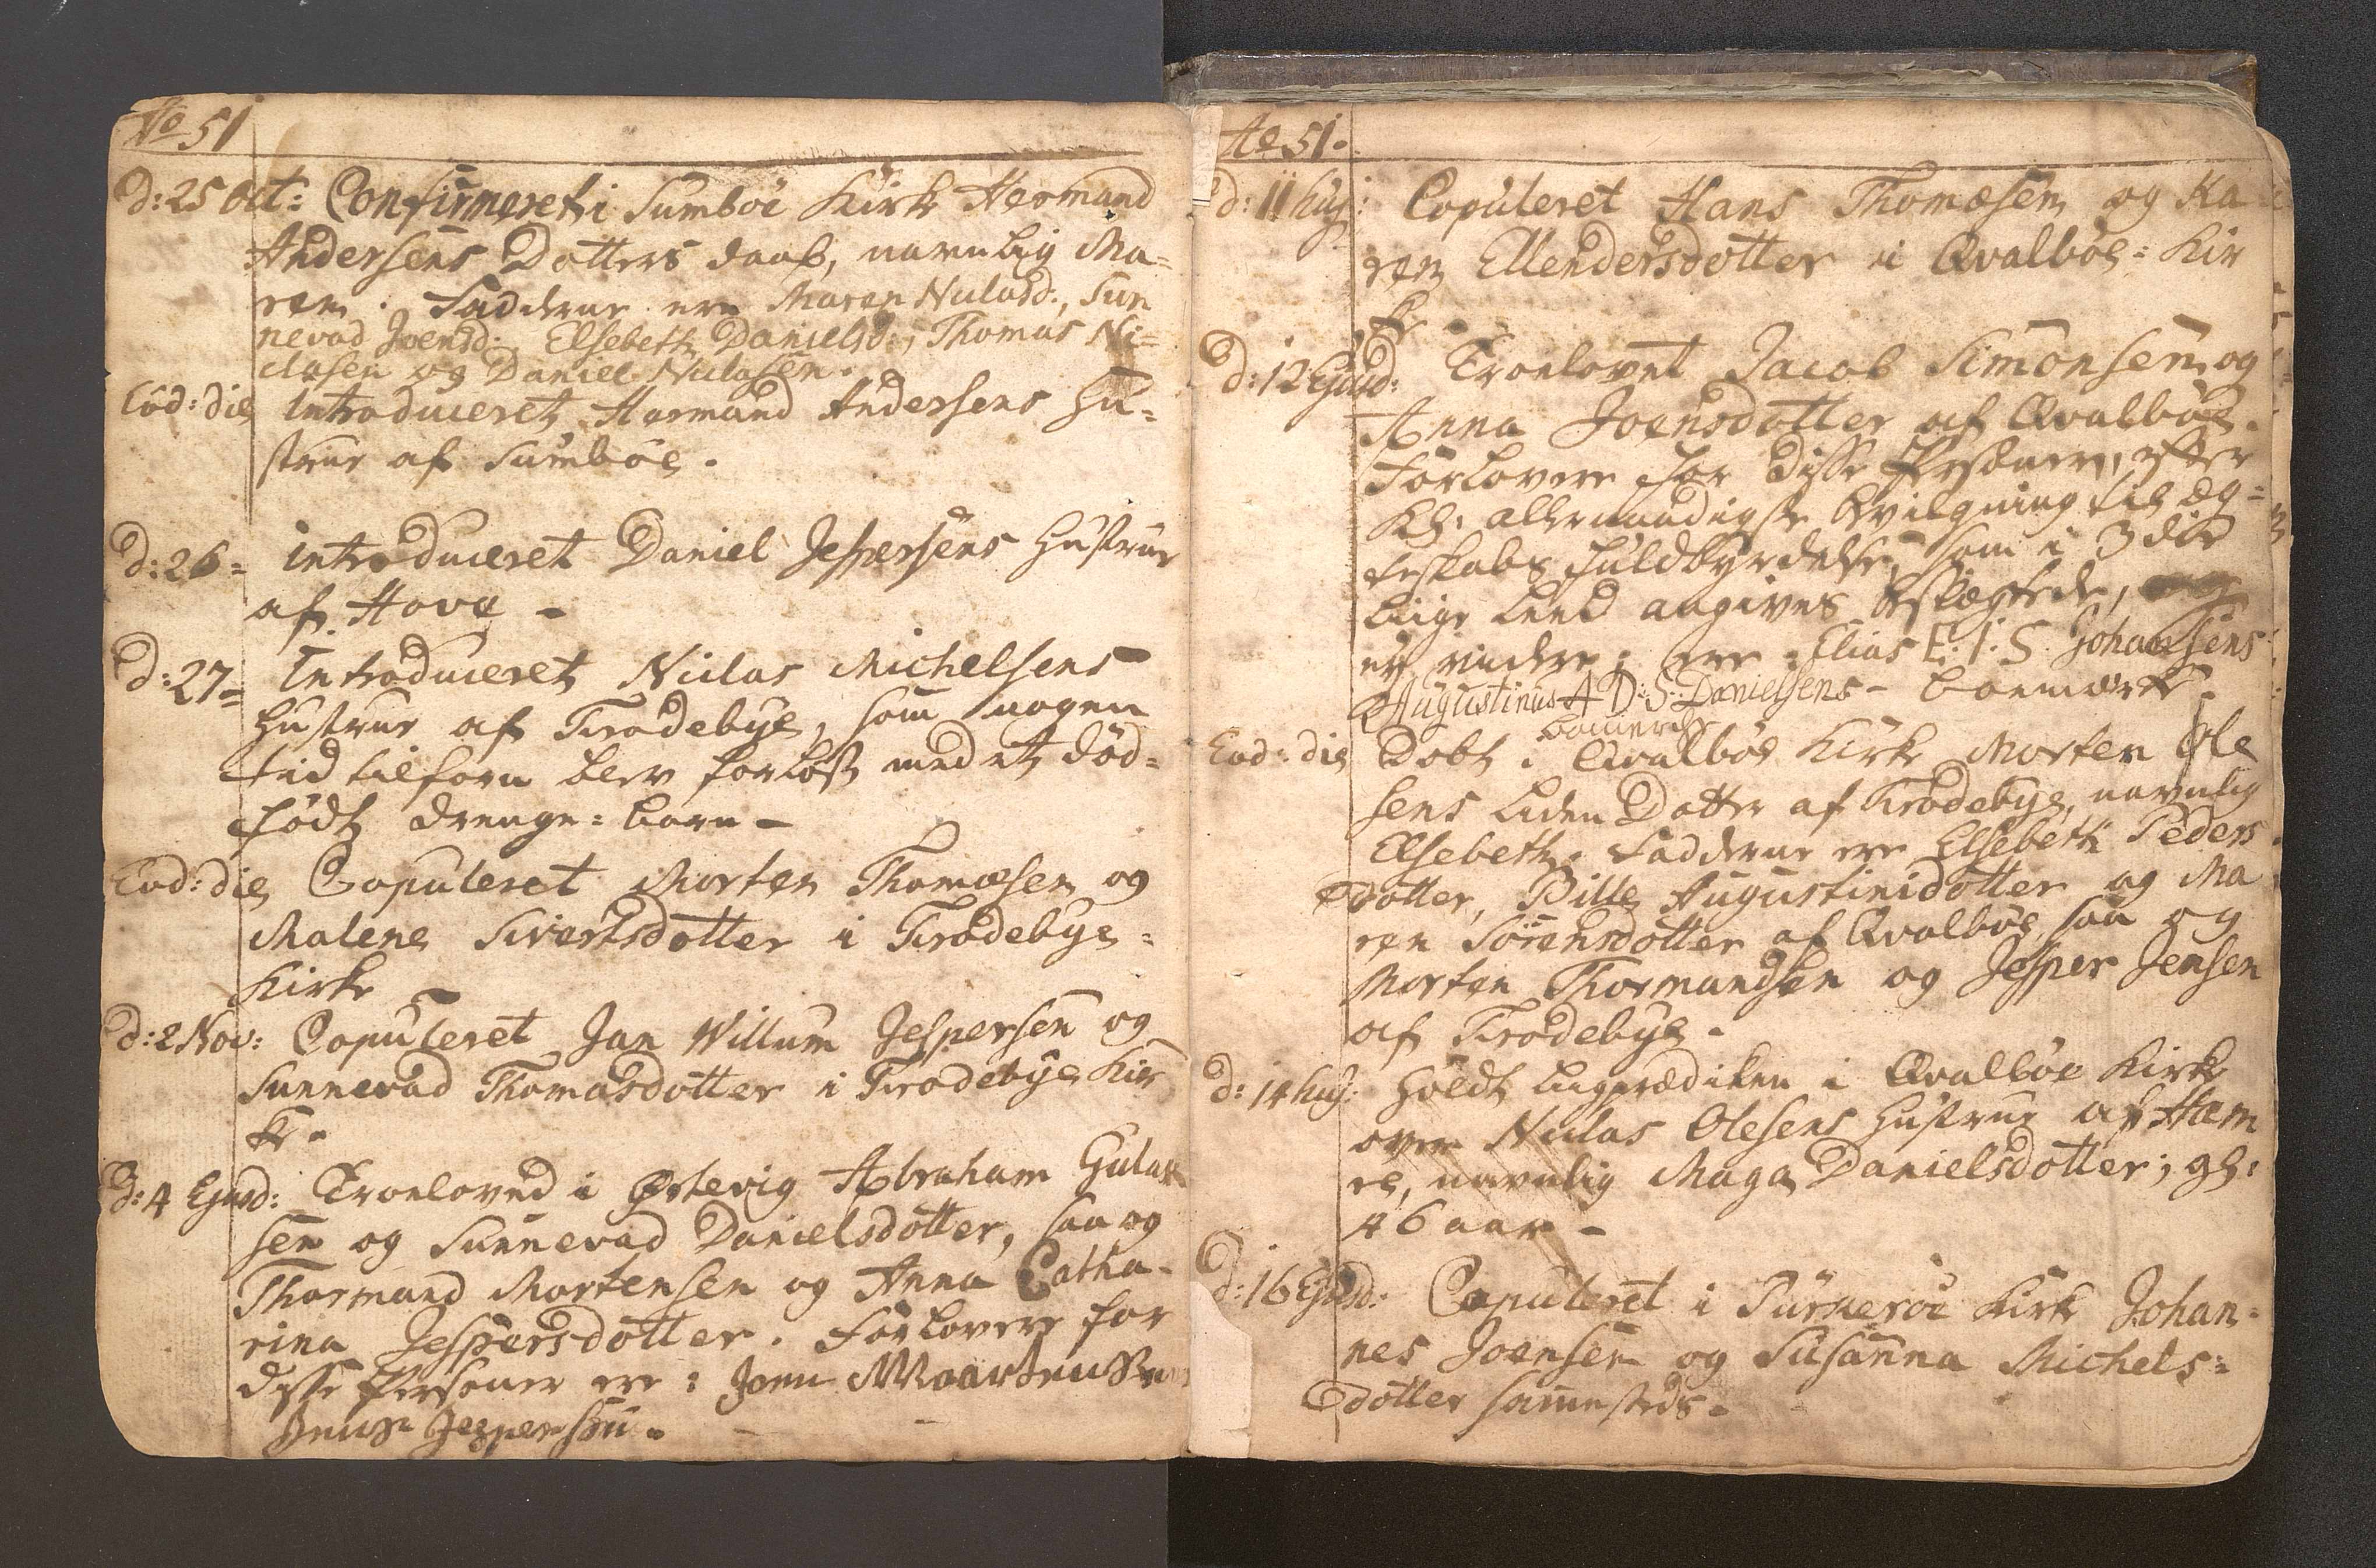 Ao 51
D: 25 Oct: Confirmeret i Sumböe Kirke Hermand
Andersens Dotters daab, navnlig Ma=
ren. Fadderne ere Maren Niclasd:, Sun
nevad Joensd:, Elsebeth Danielsd:, Thomas Ni=
clasen og Daniel Niclasen.
Eod: die Introduceret Harmand Andersens Hu=
strue af Sumböe.
D: 26= introduceret Daniel Jespersens Hustrue
af Hove -
D: 27= Introduceret Niclas Michelsens
Hustrue af Frodebye, som nogen
tid tilforn blev forlöst med et död=
födt drenge=barn -
Eod: die Copuleret Morten Thomæsen og
Malene Sivertsdotter i Frodebye=
Kirke
D: 2 Nov: Copuleret Jan Willum Jespersen og
Sunnevad Thomasdotter i Frodebye Kir
ke.
D: 4 Ejusd: Troeloved i Østevig Abraham Gulak
sen og Sunnevad Danielsdotter, saa og
Thormand Mortensen og Anna Catha=
rina Jespersdotter. Forlovere for
disse Personer ere: Joen Maartensen
Jens Jespersen.
Ao 51.
D: 11 huj: Copuleret Hans Thomæsen og Ka
ren Ellendersdotter i Qvalböe=Kir
ke
D: 12 Ejusd: Troelovet Jacob Simonsen og
Anna Joensdotter af Qvalböe.
Forlovere for disse Personer, efter
Kgl. allernaadigste bevilgning til æg=
teskabs fuldbyrdelse, som i 3die
liige Leed angives beslægtede,
ey videre; ere: Elias E. I. S. Johansens
Augustinus A D: S: Danielsens - boemærke.
bomerche
Eod: die Döbt i Qvalböe Kirke Morten Ole
sens liden Dotter af Frodebye, navnlig
Elsebeth. Fadderne ere Elsebeth Peders
dotter, Bille Augustinidotter og Ma
ren Sörensdotter af Qvalböe, saa og
Morten Thormandsen og Jesper Jensen
af Frodebye.
D: 14 huj: Holdt Liigprædiken i Qvalböe Kirke
over Niclas Olesens Hustrue af Ham
re, navnlig Maga Danielsdotter; gl:
46 aar -
D: 16 Ejusd: Copuleret i Purkeröe Kirke Johan=
nes Joensen og Susanna Michels=
dotter sammesteds.